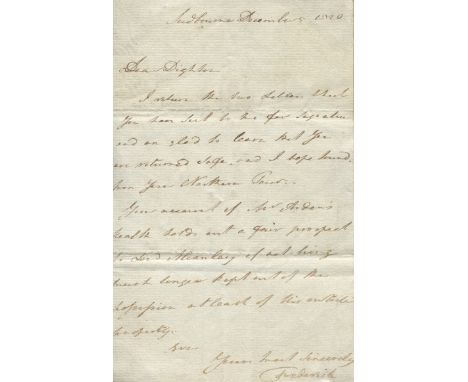 Sudbourne December 5 1820
Dear Dighton
I return the two Letters that
You have sent to me for signature
and am glad to learn that You
are returned safe, and I hope sound,
from Your Northern Tour.
Your account of Mr Arden's
health holds out a fair prospect
to Lord Alvanley of not being
much longer kept out of the
possession at least of his entailed
property.
Ever
Yours most sincerely
Frederick